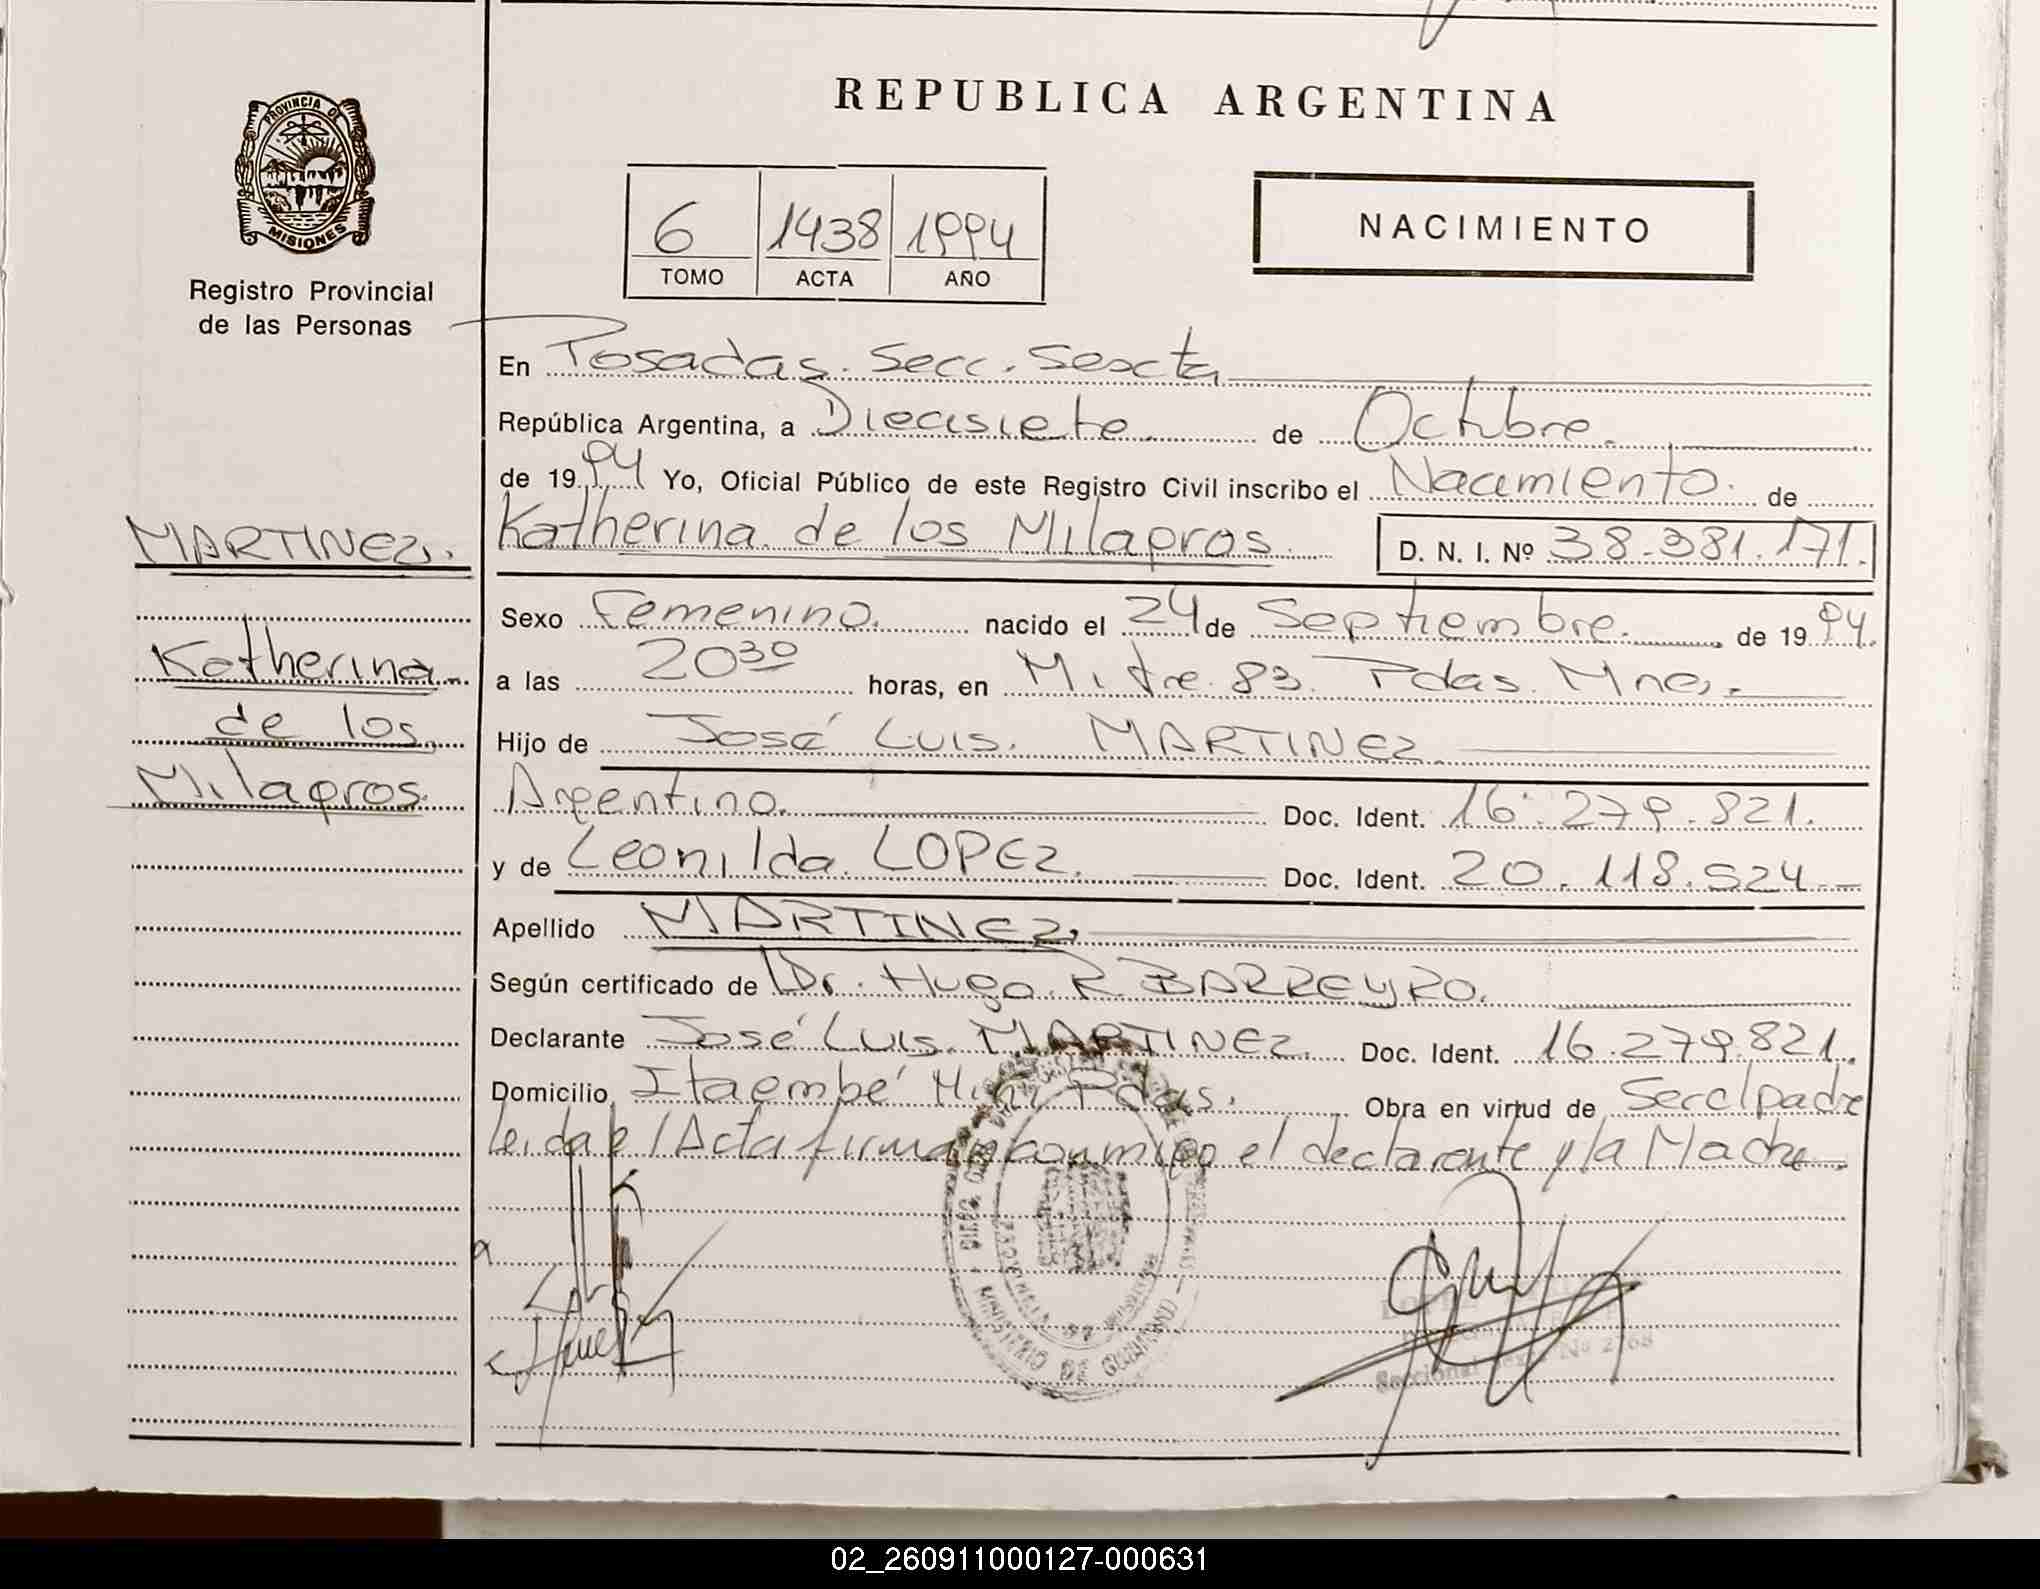 REPUBLICA ARGENTINA
PROVINCIA DE
MISIONES
Registro Provincial
de las Personas
6 1438 1994
TOMO ACTA AÑO
NACIMIENTO
En Posadas. Secc. Sexta
República Argentina, a Diecisiete de Octubre.
de 1994 Yo, Oficial Público de este Registro Civil inscribo el Nacimiento. de
Katherina de los Milagros. D. N. I. Nº 38.381.171.
MARTINEZ.
Katherina
de los
Milagros.
Sexo Femenino. nacido el 24 de Septiembre. de 1994.
a las 20³⁰ horas, en Mitre 83. Pdas. Mnes.
Hijo de José Luis. MARTINEZ
Argentino. Doc. Ident. 16.279.821.
y de Leonilda LOPEZ. Doc. Ident. 20.118.524.
Apellido MARTINEZ.
Según certificado de Dr. Hugo R BARREYRO.
Declarante José Luis. MARTINEZ. Doc. Ident. 16.279.821.
Domicilio Itaembé Miní Pdas. Obra en virtud de Ser el padre
Leida el Acta firman conmigo el declarante y la Madre.
MINISTERIO DE GOBIERNO
PROVINCIA DE MISIONES
Seccional Sexta Nº 2768
02_260911000127-000631